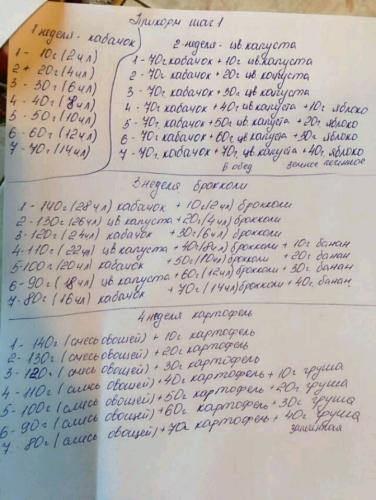 Прикорм шаг 1
1 неделя - кабачок
1 - 10г (2 ч л)
2 - 20г (4 ч л)
3 - 30г (6 ч л)
4 - 40г (8 ч л)
5 - 50г (10 ч л)
6 - 60г (12 ч л)
7 - 70г (14 ч л)
2 неделя - цв капуста
1 - 70г кабачок + 10г цв. капуста
2 - 70г кабачок + 20г цв капуста
3 - 70г кабачок + 30г цв капуста
4 - 70г кабачок + 40г цв капуста + 10г яблоко
5 - 70г кабачок + 50г цв капуста + 20г яблоко
6 - 70г кабачок + 60г цв капуста + 30г яблоко
7 - 70г кабачок + 70г цв капуста + 40г яблоко
в обед
3 неделя брокколи
1 - 140г (28 ч л) кабачок + 10г (2 ч л) брокколи
2 - 130г (26 ч л) цв капуста + 20г (4 ч л) брокколи
3 - 120г (24 ч л) кабачок + 30г (6 ч л) брокколи
4 - 110г (22 ч л) цв капуста + 40г (8 ч л) брокколи + 10г банан
5 - 100г (20 ч л) кабачок + 50г (10 ч л) брокколи + 20г банан
6 - 90г (18 ч л) цв капуста + 60г (12 ч л) брокколи + 30г банан
7 - 80г (16 ч л) кабачок + 70г (14 ч л) брокколи + 40г банан
4 неделя картофель
1 - 140г (смесь овощей) + 10г картофель
2 - 130г (смесь овощей) + 20г картофель
3 - 120г (смесь овощей) + 30г картофель
4 - 110г (смесь овощей) + 40г картофель + 10г груша
5 - 100г (смесь овощей) + 50г картофель + 20г груша
6 - 90г (смесь овощей) + 60г картофель + 30г груша
7 - 80г (смесь овощей) + 70г картофель + 40г груша